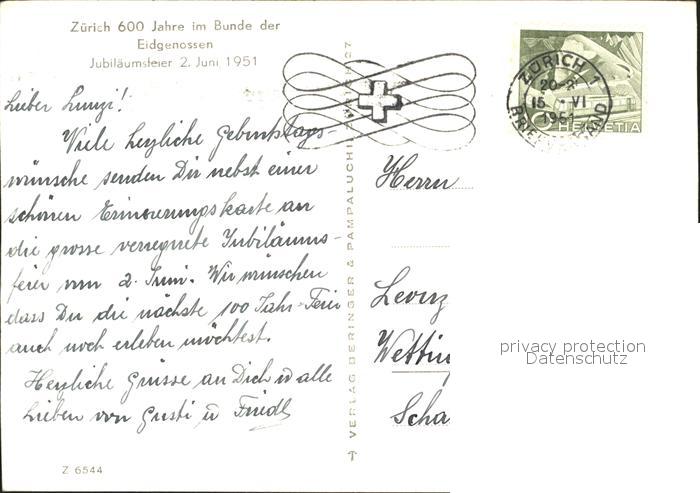 Zürich 600 Jahre im Bunde der
Eidgenossen
Jubiläumsfeier 2. Juni 1951
Lieber
Viele herzliche Geburtstags-
wünsche senden Dir nebst einer
schönen Erinnerungskarte an
die grosse verregnete Jubiläums-
feier vom 2. Juni. Wir wünschen
dass Du die nächste 100 Jahr-Feier
auch noch erleben möchtest.
Herzliche Grüsse an Dich u alle
Lieben von Gusti u Friedl
Z 6544
VERLAG BERINGER & PAMPALUCHI ZÜRICH 27
ZÜRICH 1
15. VI
1951
BRIEFVERSAND
HELVETIA
Herrn
Lenz
Wettin
Scha
privacy protection
Datenschutz